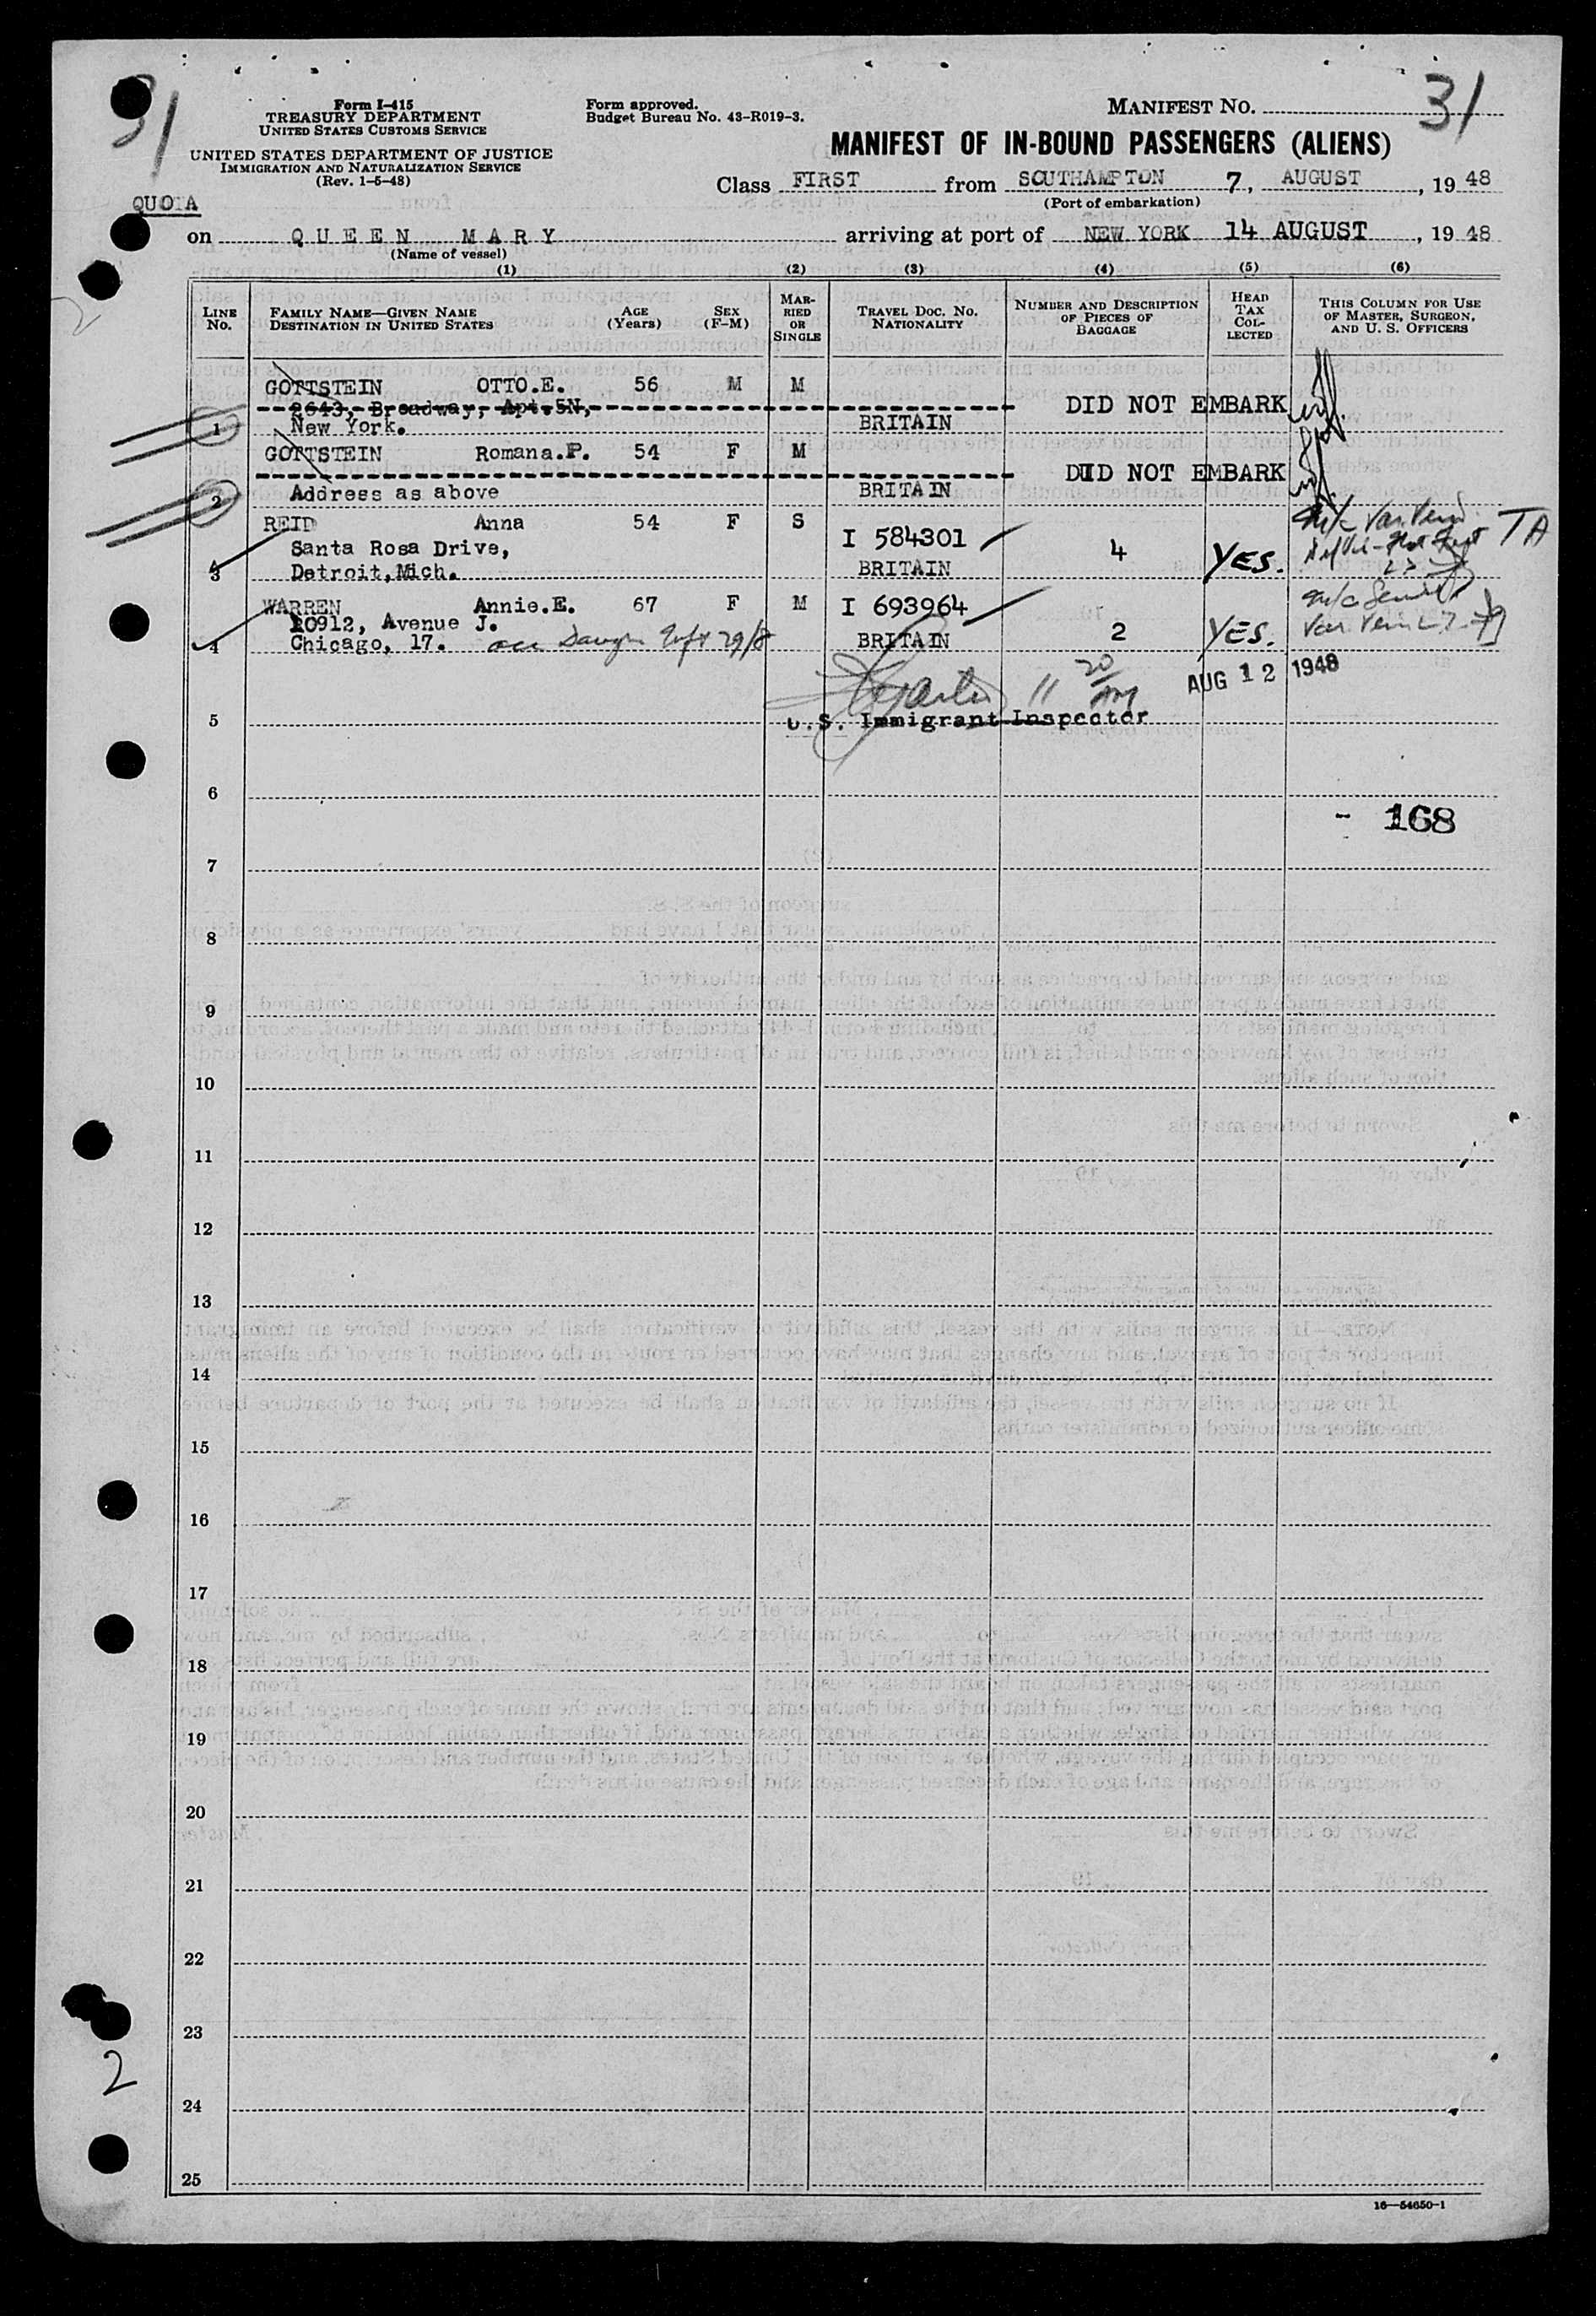 31
31
Form I-415
TREASURY DEPARTMENT
UNITED STATES CUSTOMS SERVICE
UNITED STATES DEPARTMENT OF JUSTICE
IMMIGRATION AND NATURALIZATION SERVICE
(Rev. 1-5-48)
Form approved.
Budget Bureau No. 43-R019-3.
MANIFEST NO.
MANIFEST OF IN-BOUND PASSENGERS (ALIENS)
Class FIRST from SOUTHAMPTON 7, AUGUST, 19 48
(Port of embarkation)
QUOTA
on QUEEN MARY arriving at port of NEW YORK 14 AUGUST, 19 48
(Name of vessel)
(1) (2) (3) (4) (5) (6)
LINE No. FAMILY NAME—GIVEN NAME DESTINATION IN UNITED STATES AGE (Years) SEX (F-M) MARRIED OR SINGLE TRAVEL DOC. NO. NATIONALITY NUMBER AND DESCRIPTION OF PIECES OF BAGGAGE HEAD TAX COLLECTED THIS COLUMN FOR USE OF MASTER, SURGEON, AND U. S. OFFICERS
GOTTSTEIN OTTO.E. 56 M M
2643, Broadway, Apt.5N, DID NOT EMBARK
1 New York. BRITAIN
GOTTSTEIN Romana.P. 54 F M
DID NOT EMBARK
2 Address as above BRITAIN
REID Anna 54 F S I 584301
Santa Rosa Drive, 4 YES. TA
3 Detroit,Mich. BRITAIN
WARREN Annie.E. 67 F M I 693964
10912, Avenue J.
4 Chicago, 17. BRITAIN 2 YES.
11 20 AM AUG 12 1948
5 U.S. Immigrant Inspector
6
- 168
7
8
9
10
11
12
13
14
15
16
17
18
19
20
21
22
23
2
24
25
16—54650-1